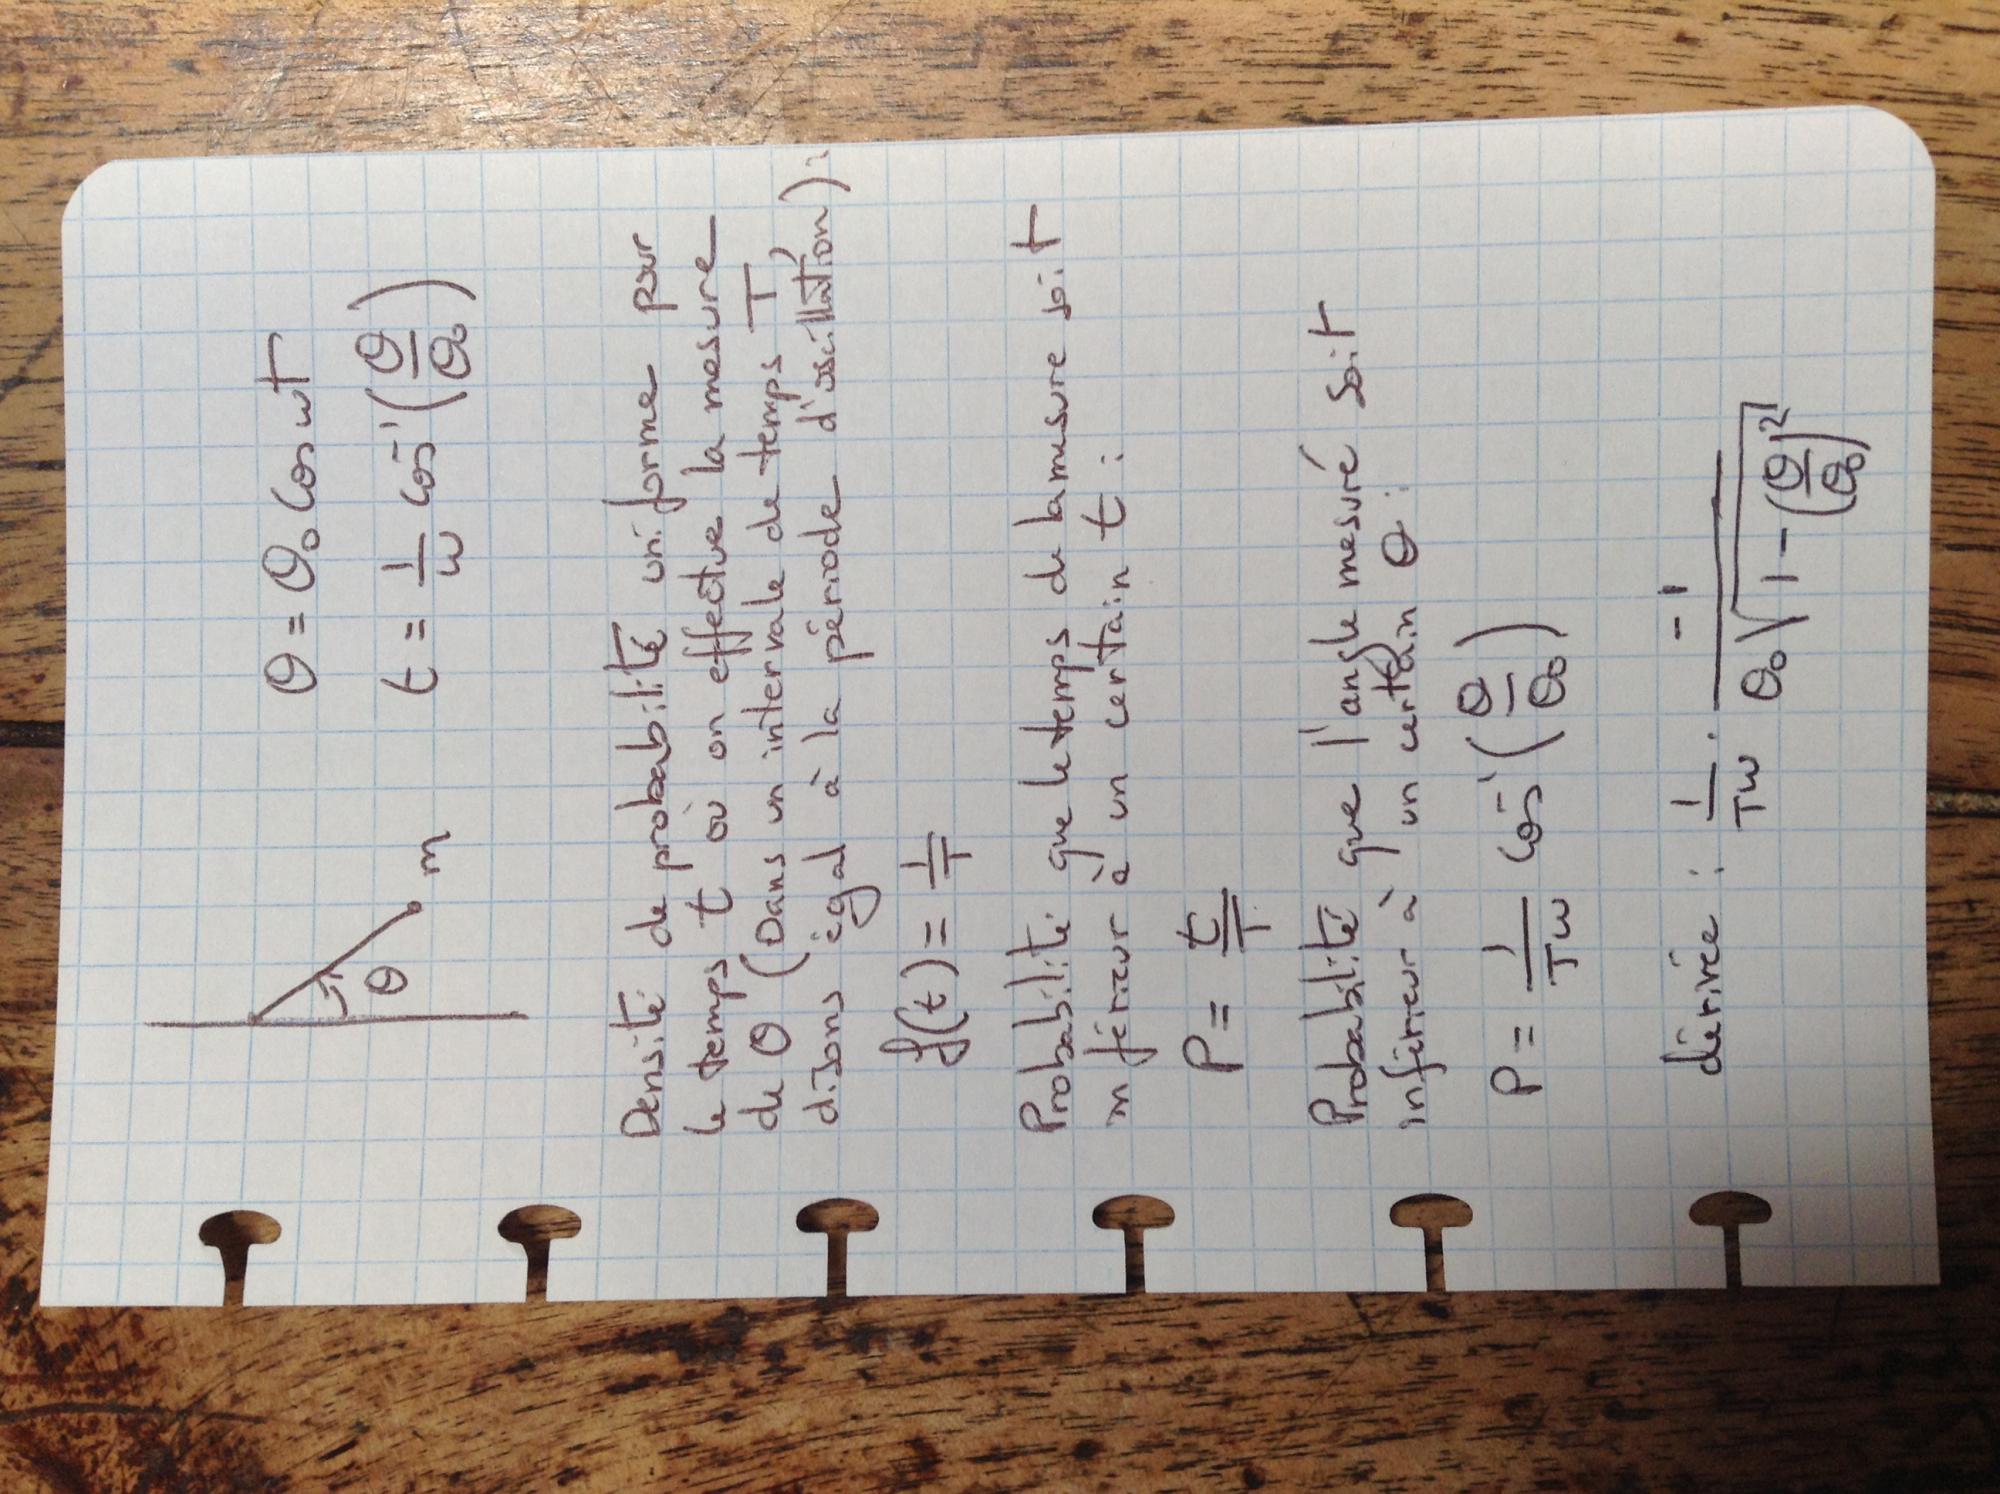 θ = θ₀ cos ωt
t = 1/ω cos⁻¹(θ/θ₀)
θ
m
Densité de probabilité uniforme pour
le temps t où on effectue la mesure
de θ (Dans un intervale de temps T,
disons égal à la période d'oscillation)
f(t) = 1/T
Probabilité que le temps de la mesure soit
inférieur à un certain t :
P = t/T
Probabilité que l'angle mesuré soit
inférieur à un certain θ :
P = 1/Tω cos⁻¹(θ/θ₀)
dérivée : 1/Tω · -1/(θ₀√(1-(θ/θ₀)²))